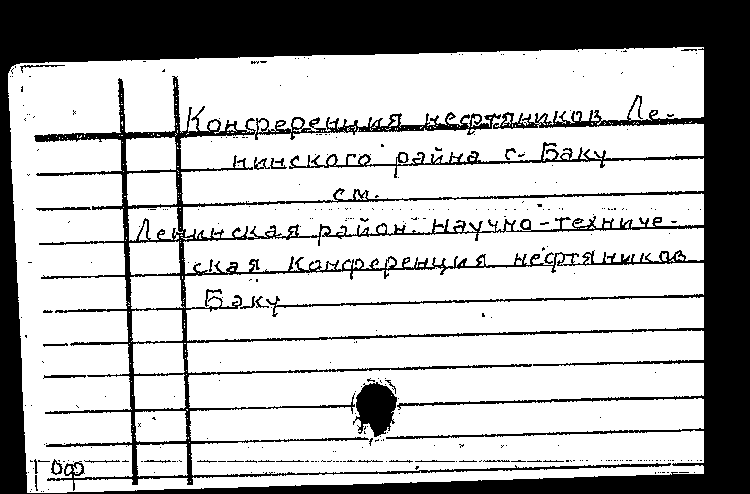 Конференция нефтяников Ле-
нинского райна г. Баку
см.
Ленинская район. научно-техниче-
ская конференция нефтяников
Баку
оф